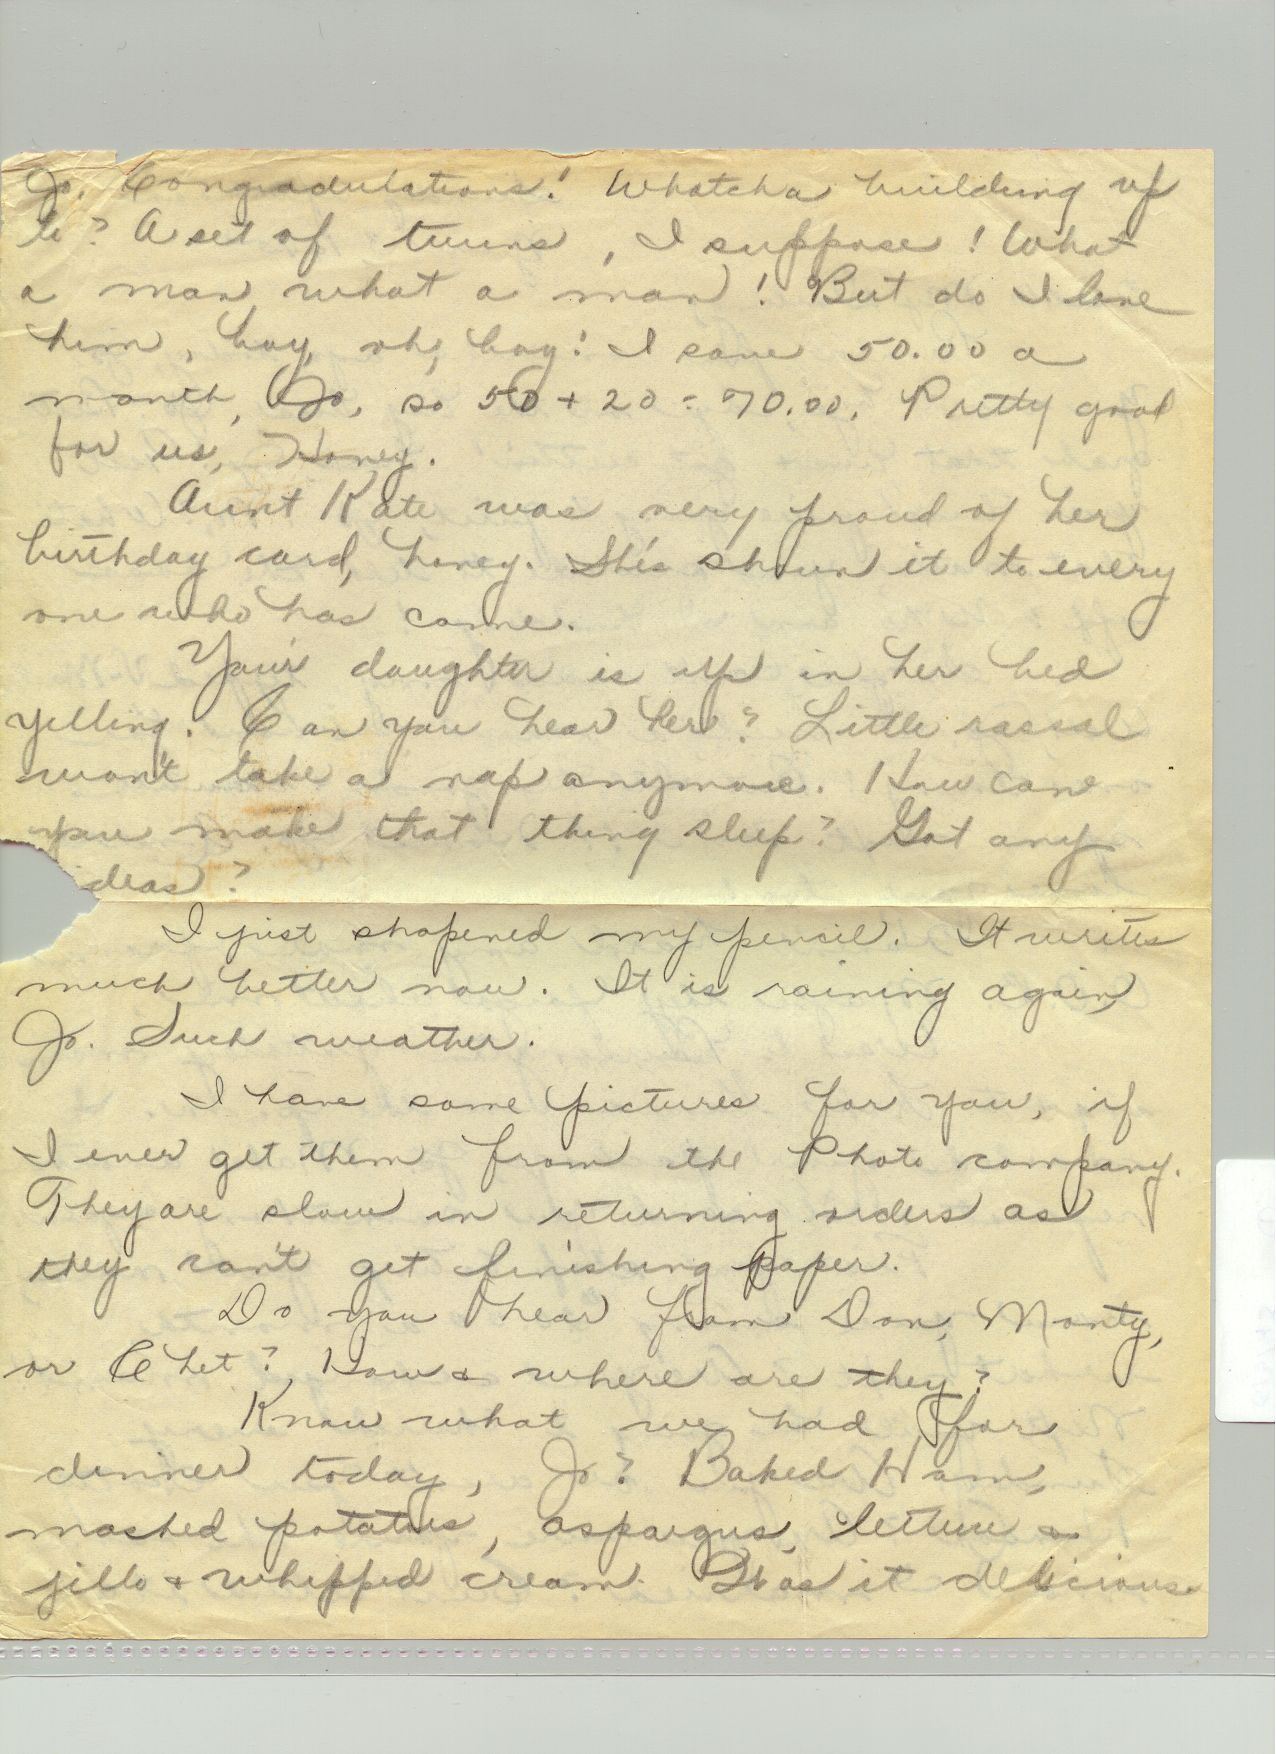 Jo. Congradulations! Whatcha building up
to? A set of twins, I suppose! What
a man, what a man! But do I love
him, boy, oh, boy! I save 50.00 a
month, Jo, so 50 + 20 = 70.00. Pretty good
for us, Honey.
Aunt Kate was very proud of her
birthday card, honey. She's shown it to every
one who has come.
Your daughter is up in her bed
yelling. Can you hear her? Little rascal
won't take a nap anymore. How can
you make that thing sleep? Got any
ideas?
I just shapened my pencil. It writes
much better now. It is raining again,
Jo. Such weather.
I have some pictures for you, if
I ever get them from the Photo company.
They are slow in returning orders as
they can't get finishing paper.
Do you hear from Don, Monty,
or Chet? How & where are they?
Know what we had for
dinner today, Jo? Baked Ham,
mashed potatoes, aspargus, lettuce &
jello & whipped cream. Was it delicious.